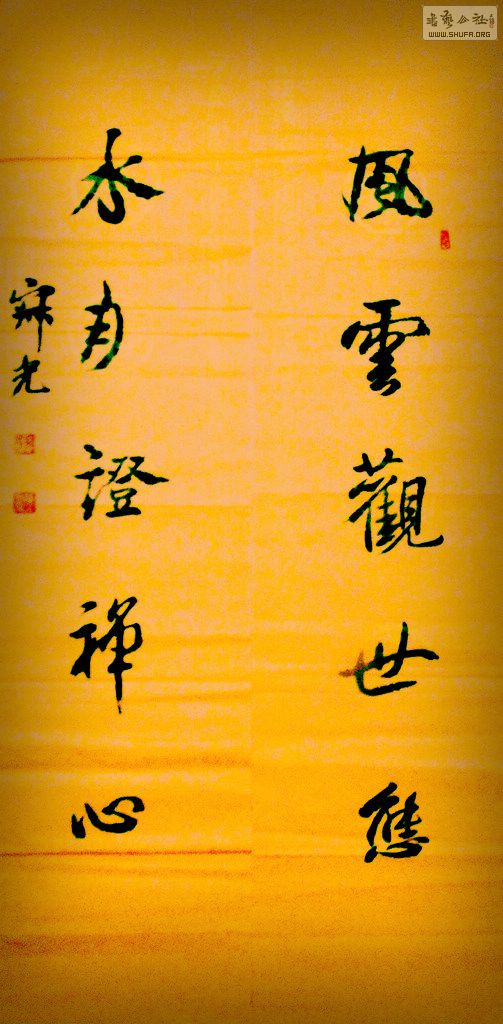 風雲觀世態
水月證禪心
寂光
書藝公社
WWW.SHUFA.ORG